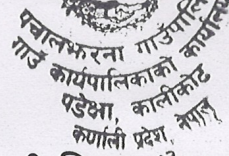 पचालझरना गाउँपालि
गाउँ कार्यपालिकाको कार्यालय
पडेक्षा, कालीकोट
कर्णाली प्रदेश, नेपाल